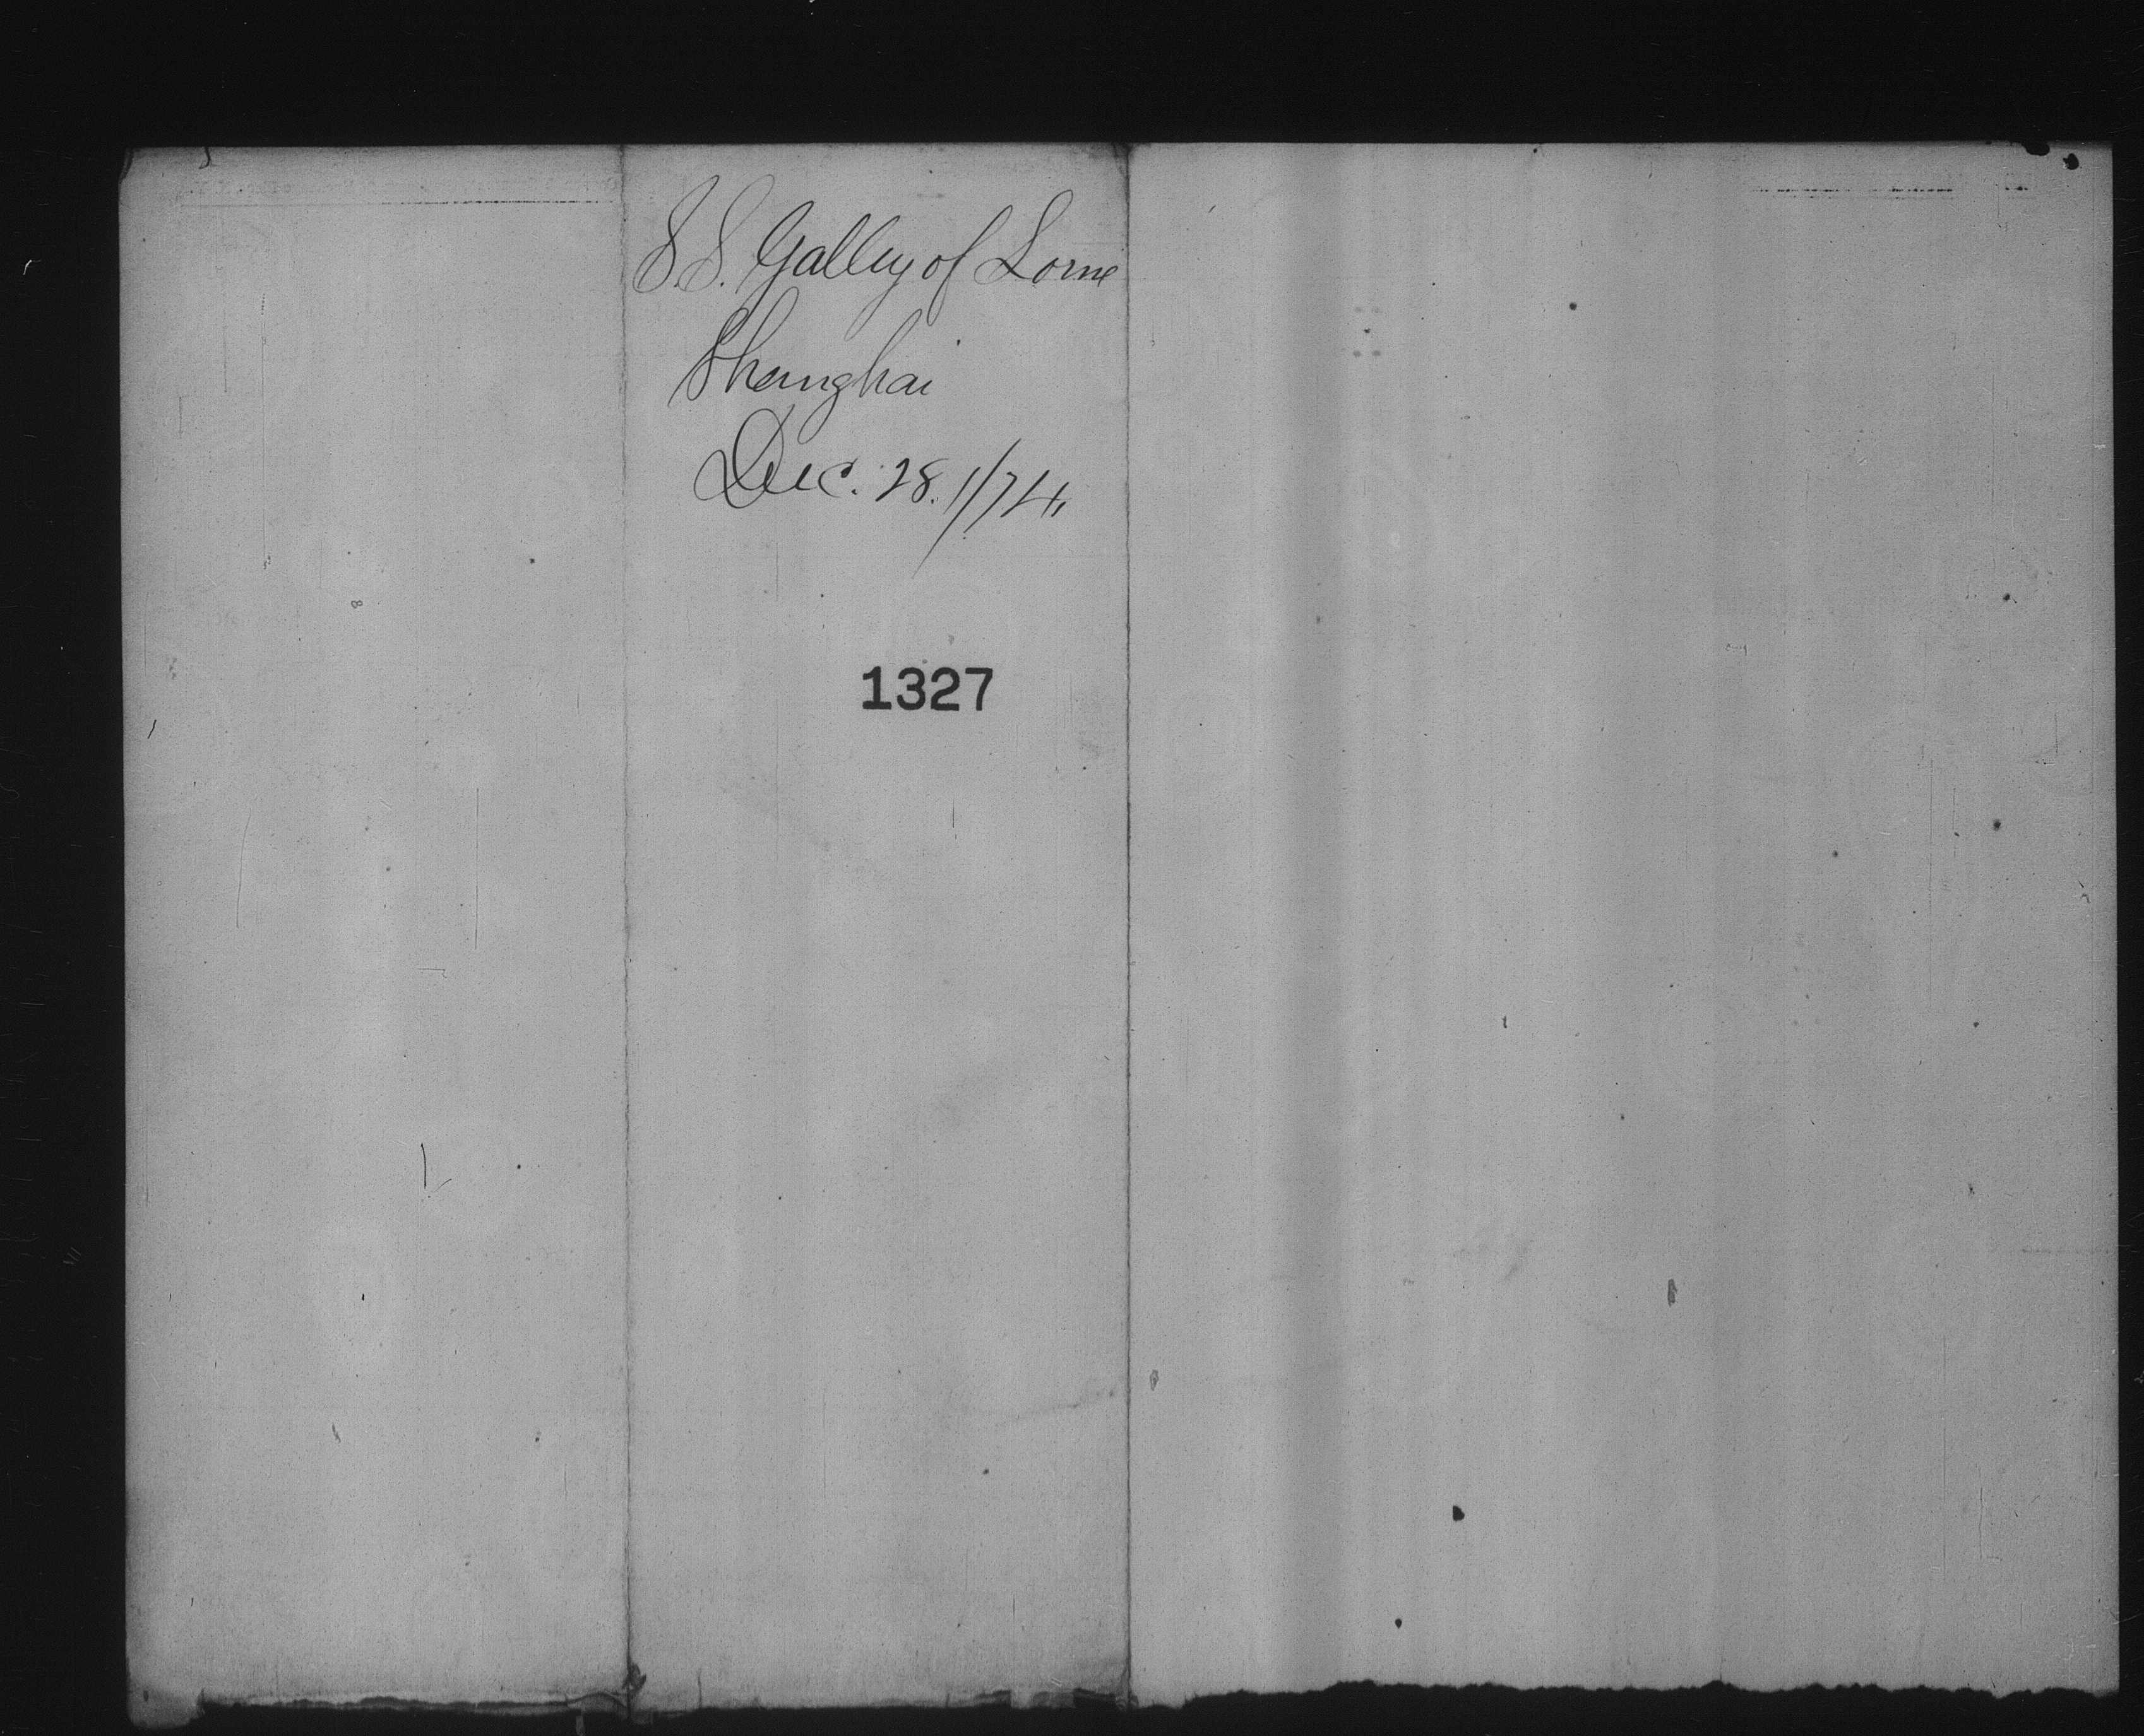 S.S. Galley of Lorne
Shanghai
Dec. 28. 1/74
1327